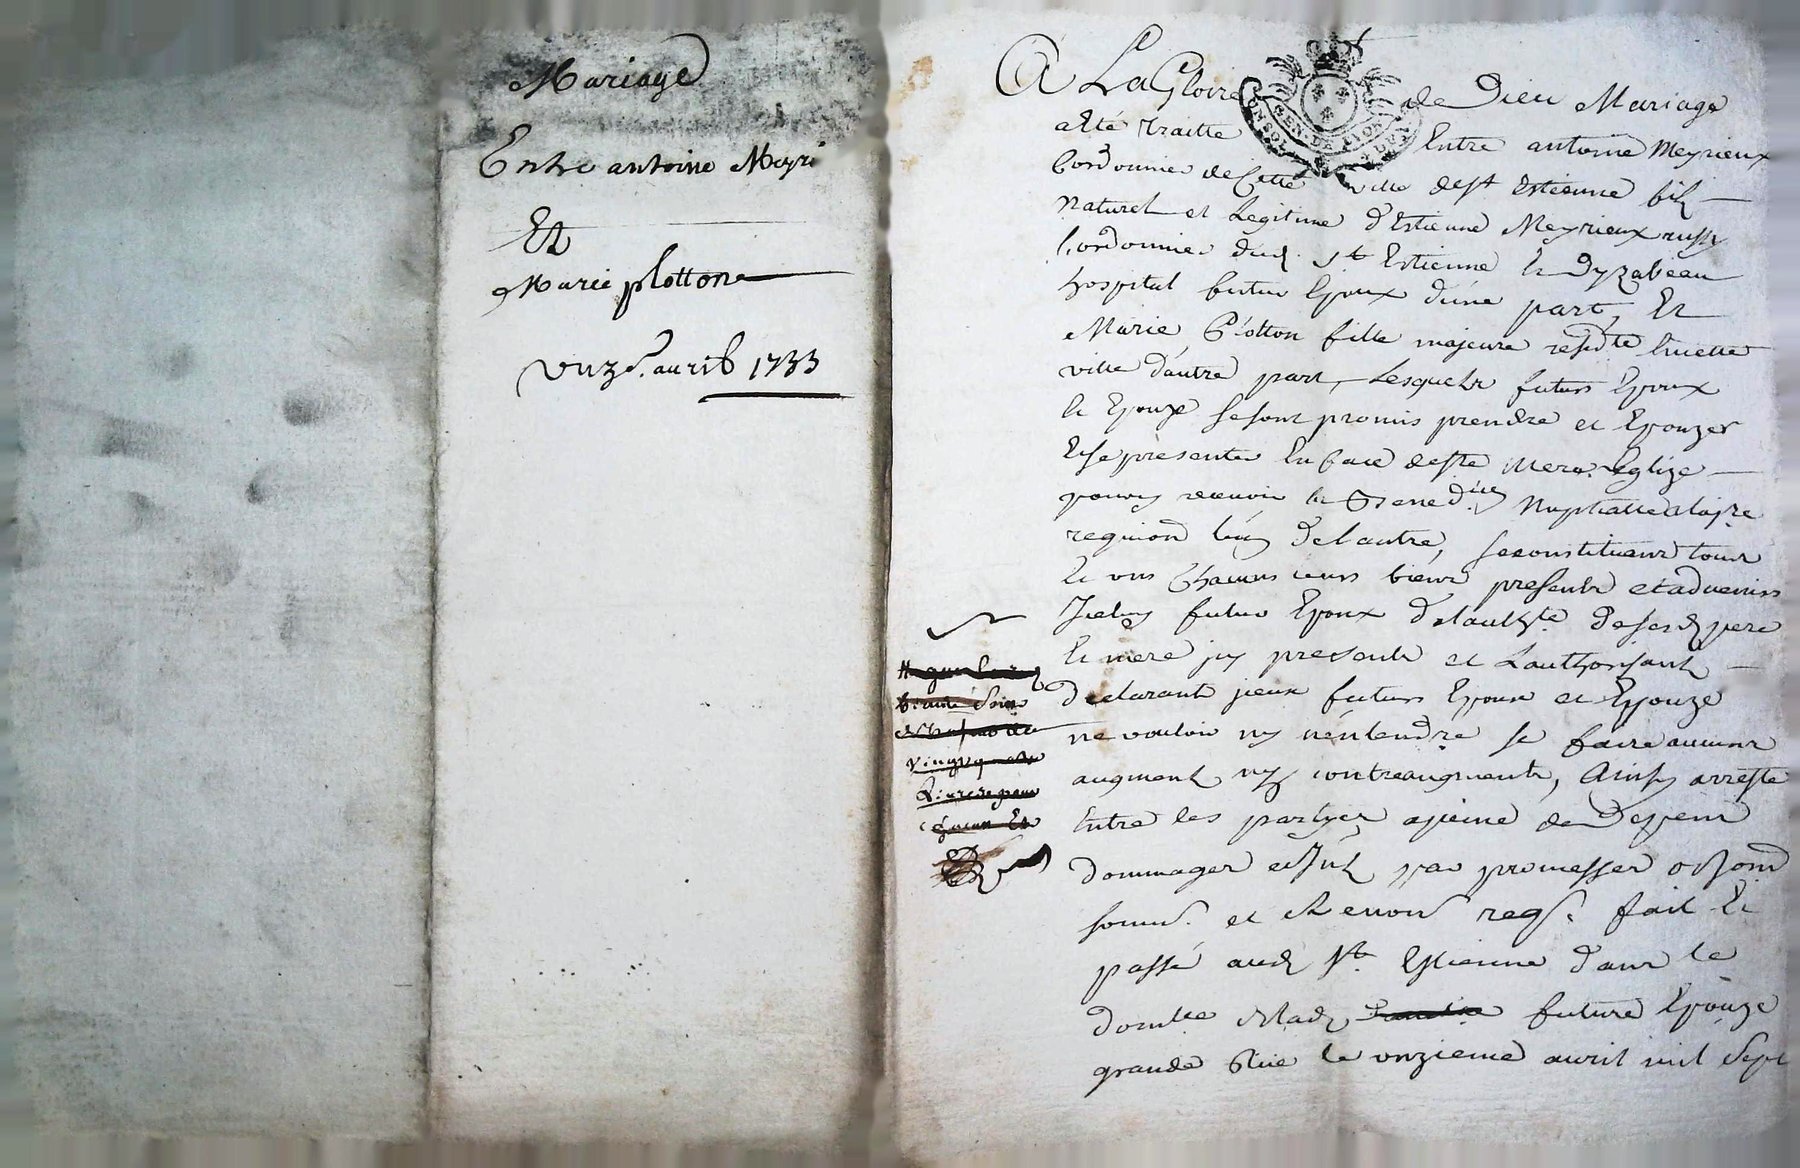 Mariage
Entre antoine Meyri
Et
Marie plottone
unze. avril 1733
A La Gloire de Dieu Mariage
a Eté traitté Entre antoine Meyrieux
Cordonnier de Cette ville de st Estienne fils
naturel et Legitime d'Estienne Meyrieux aussy
Cordonnier dud. st Estienne Et Dyzabeau
hospital futur Epoux d'une part, Et
Marie Plotton fille majeure residte En cette
ville d'autre part, Lesquels futurs Epoux
Et Epouze se sont promis prendre et Epouzer
Et se presenter En face de ste mere Eglize
pour y recevoir la Bened.
requion L'un de L'autre, se constituant tous
Et uns Chacuns leurs biens presents et advenirs
futur Epoux de L'authte de sesd pere
Et mere icy presents et L'authorisant
declarants iceux futurs Epoux et Epouze
ne vouloir ny n'entendre se faire aucuns
augment ny contreaugments, Ainsy arresté
Entre les partyes a peine de Depens
dommages et par promesses
soumis. et Renons fait Et
passé aud st. Estienne dans le
domlle de lad future Epouze
grande Rue le unzieme avril mil Sept